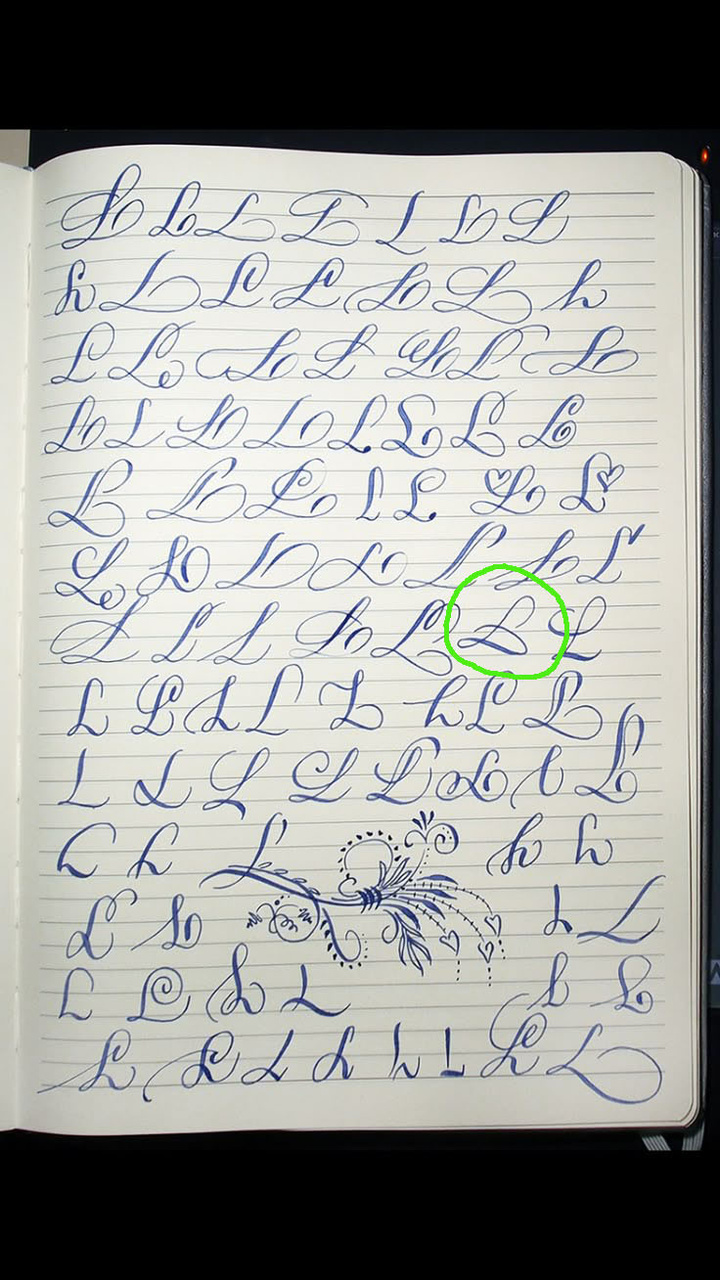 L L L L L L L
L L L L L L L
L L L L L L L
L L L L L L L L
L L L L L L L
L L L L L L L
L L L L L L L
L L L L L L L L
L L L L L L L L
L L L L L
L L L L
L L L L L L
L L L L L L L L